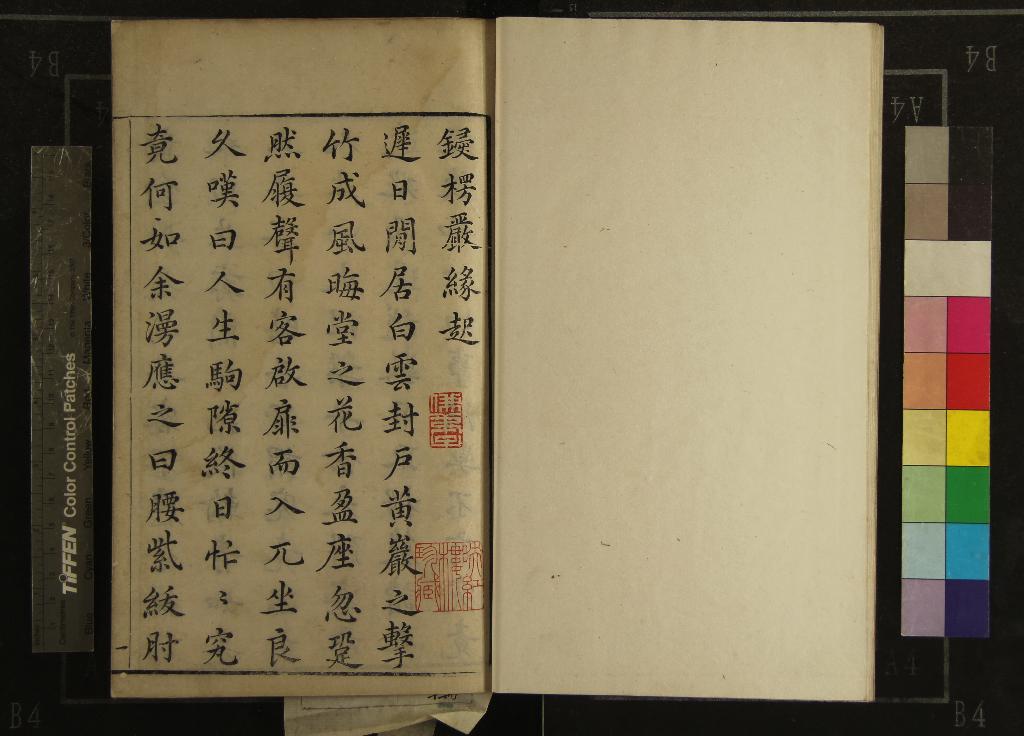 鋟楞嚴緣起
遲日閒居白雲封戶黃巖之擊
竹成風晦堂之花香盈座忽跫
然履聲有客啟扉而入兀坐良
久嘆曰人生駒隙終日忙〻究
竟何如余漫應之曰腰紫綬肘
一
TIFFEN Color Control Patches
B4
B4
B4
B4
A4
A4